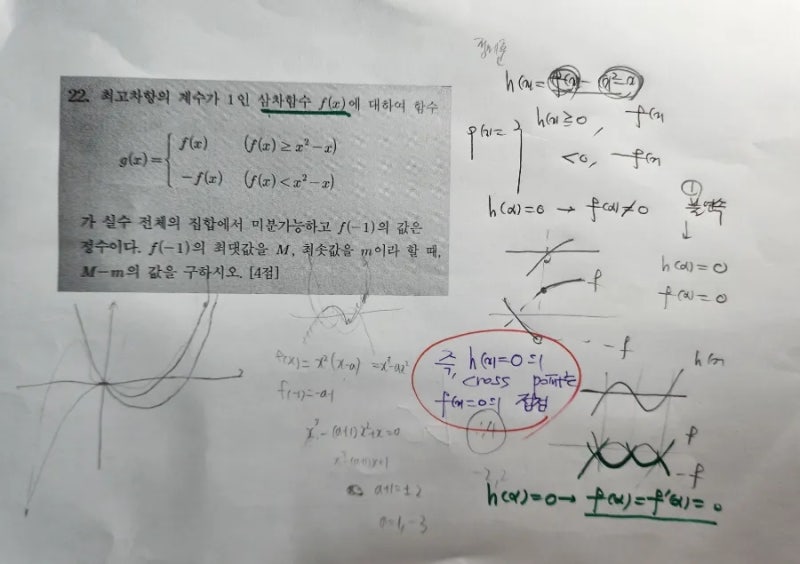 22. 최고차항의 계수가 1인 삼차함수 f(x)에 대하여 함수
g(x)={ f(x) (f(x)≥x²-x)
-f(x) (f(x)<x²-x)
가 실수 전체의 집합에서 미분가능하고 f(-1)의 값은
정수이다. f(-1)의 최댓값을 M, 최솟값을 m이라 할 때,
M-m의 값을 구하시오. [4점]
h(x)=f(x)-(x²-x)
h(x)≥0, f(x)
<0, -f(x)
h(α)=0 → f(α)≠0 ① 불연속
↓
h(α)=0
f(α)=0
f
-f
즉, h(x)=0의
cross point는
f(x)=0의 접점
h(x)
f
-f
h(α)=0→ f(α)=f'(α)=0
f(x)=x²(x-a) =x³-ax²
f(-1)=-a-1
x³-(a+1)x²+x=0
x²-(a+1)x+1
a+1=±2
a=1,-3
-2,2